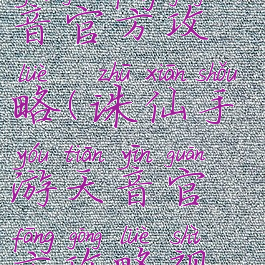 音官方攻
lüè zhū xiān shǒu
略(诛仙手
yóu tiān yīn guān
游天音官
fāng gōng lüè shì